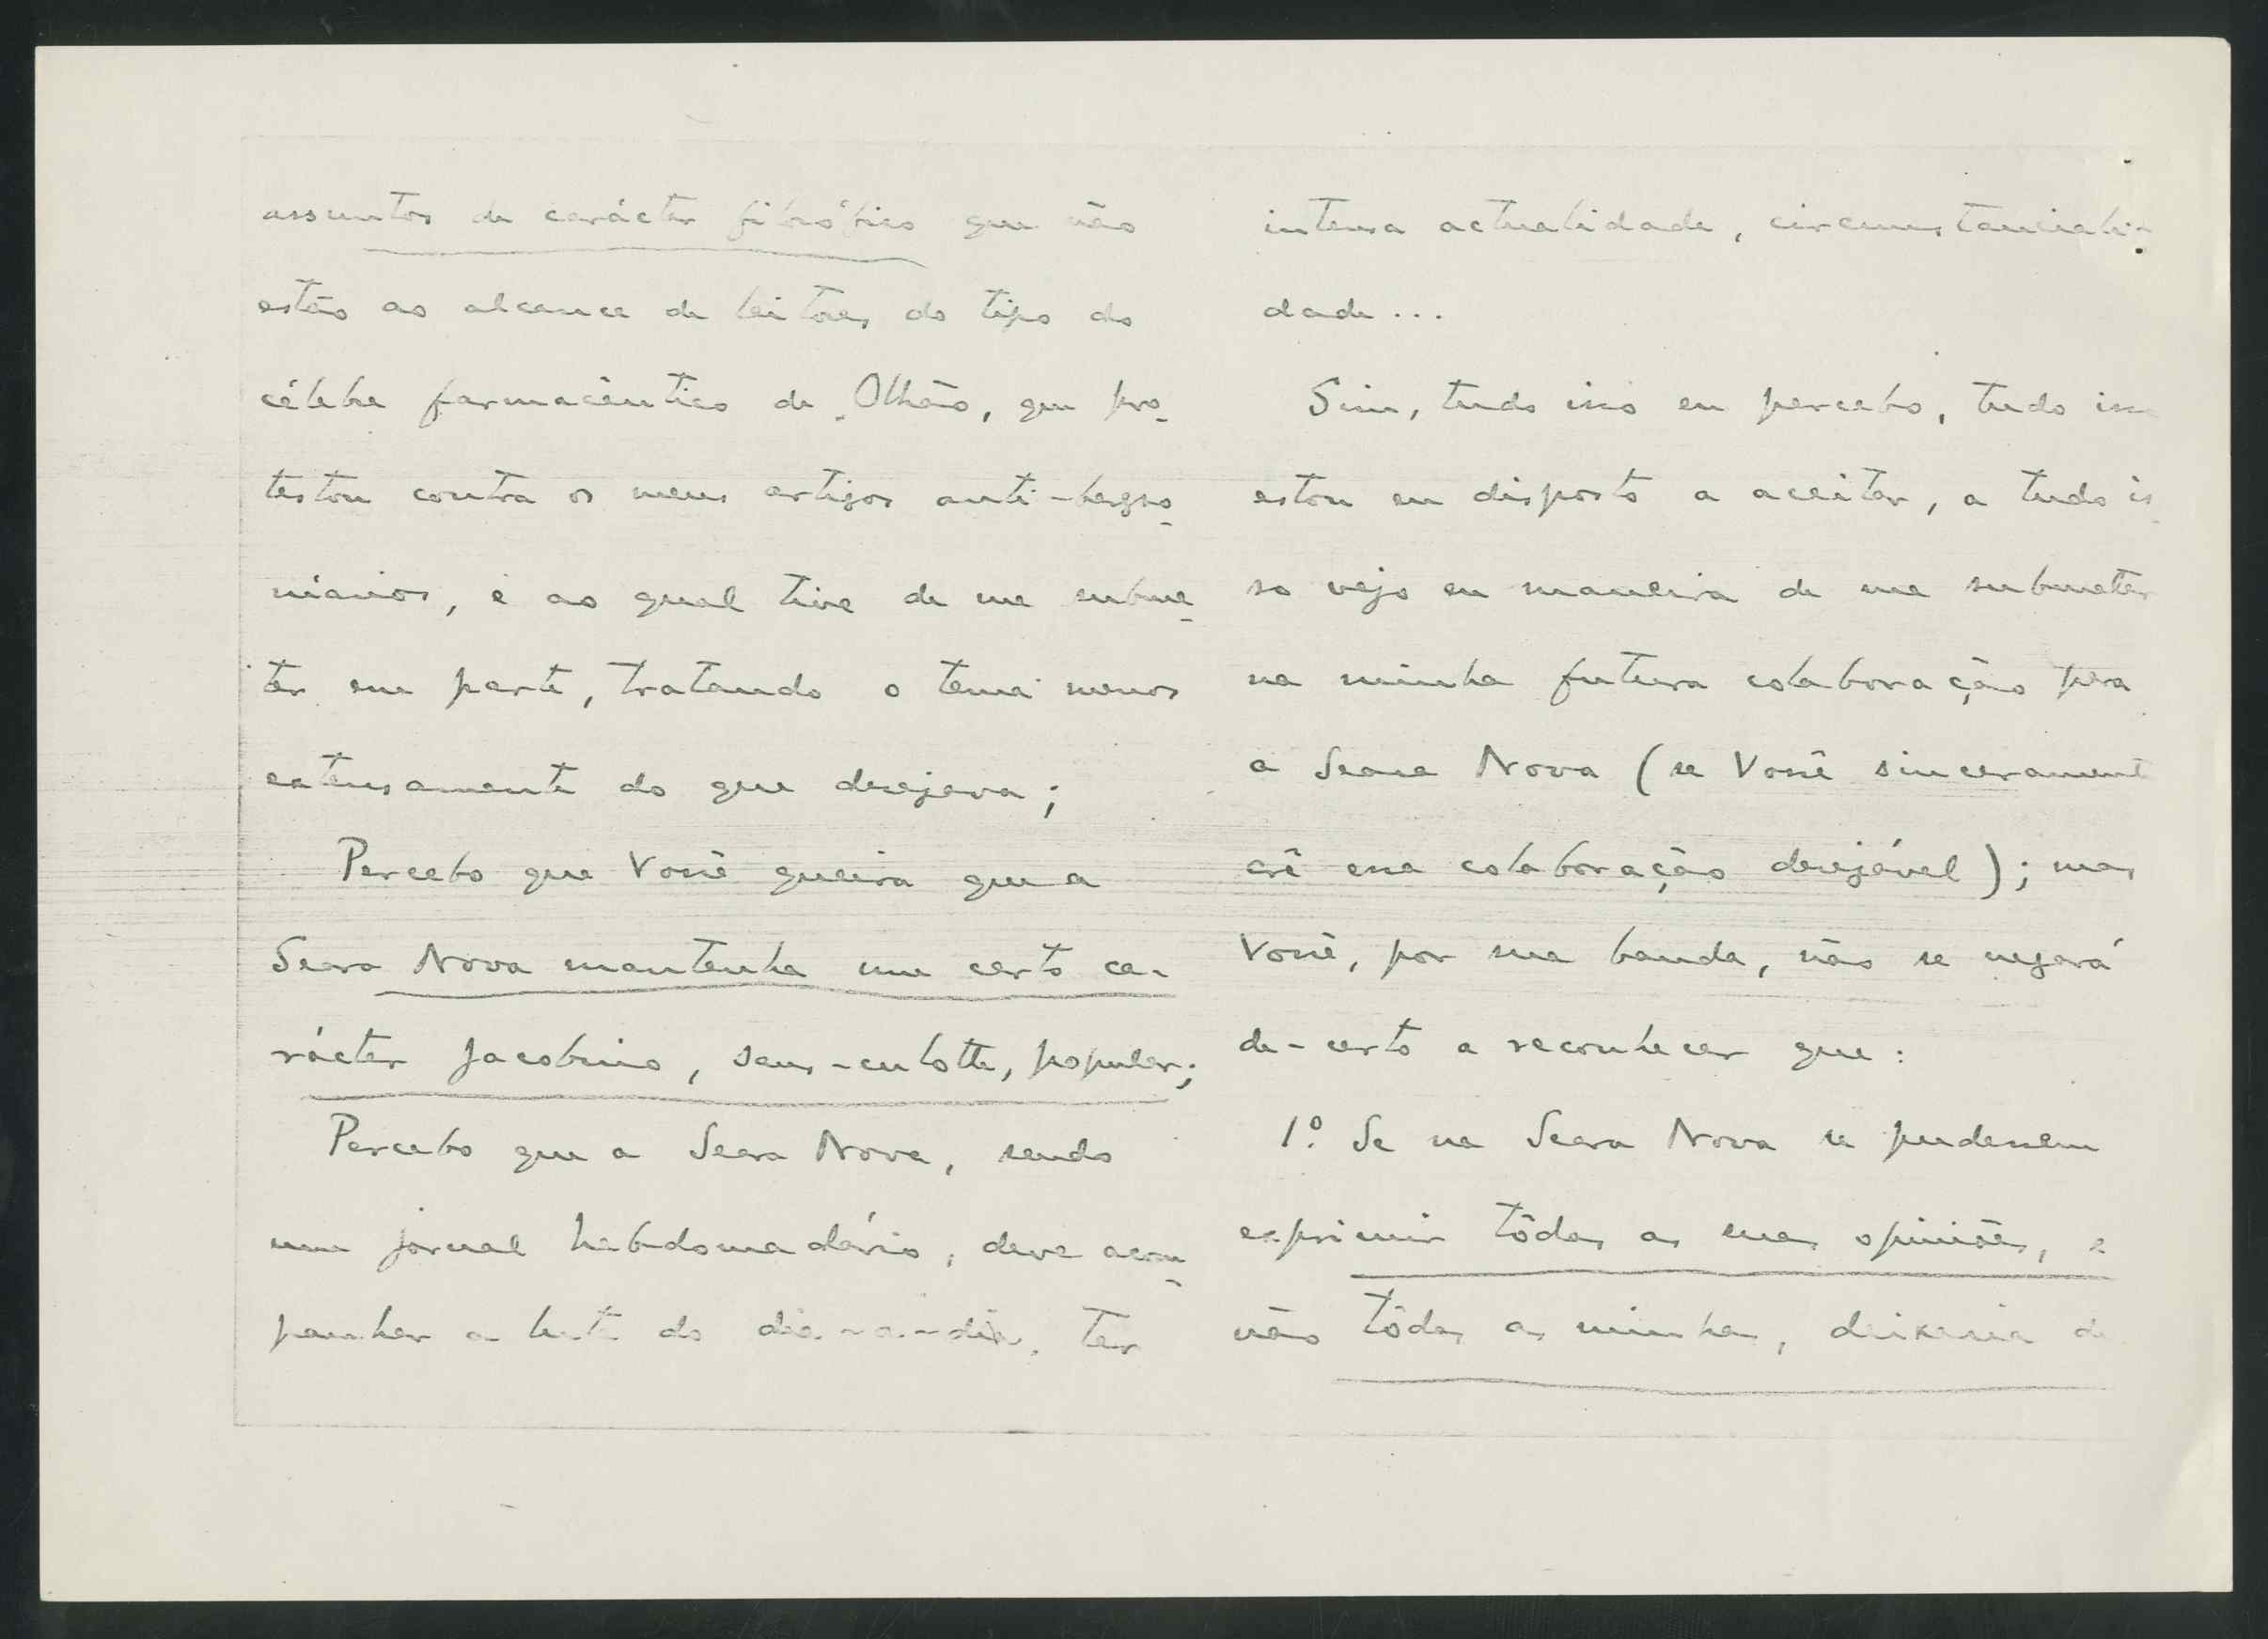 assuntos de carácter filosófico que não
estão ao alcance de leitores do tipo do
célebre farmacêutico de Olhão, que pro-
testou contra os meus artigos anti-bergso-
nianos, e ao qual tive de me subme-
ter em parte, tratando o tema menos
extensamente do que desejava;
Percebo que Você queira que a
Seara Nova mantenha um certo ca-
rácter jacobino, sans-culotte, popular;
Percebo que a Seara Nova, sendo
um jornal hebdomadário, deve acom-
panhar a luta do dia-a-dia, ter
intensa actualidade, circunstanciali-
dade...
Sim, tudo isso eu percebo, tudo isso
estou eu disposto a aceitar, a tudo is-
so vejo eu maneira de me submeter
na minha futura colaboração pra
a Seara Nova (se Você sinceramente
crê essa colaboração desejável); mas
Você, por sua banda, não se negará
de-certo a reconhecer que:
1º Se na Seara Nova se pudessem
exprimir tôdas as suas opiniões, e
não tôdas as minhas, deixaria de